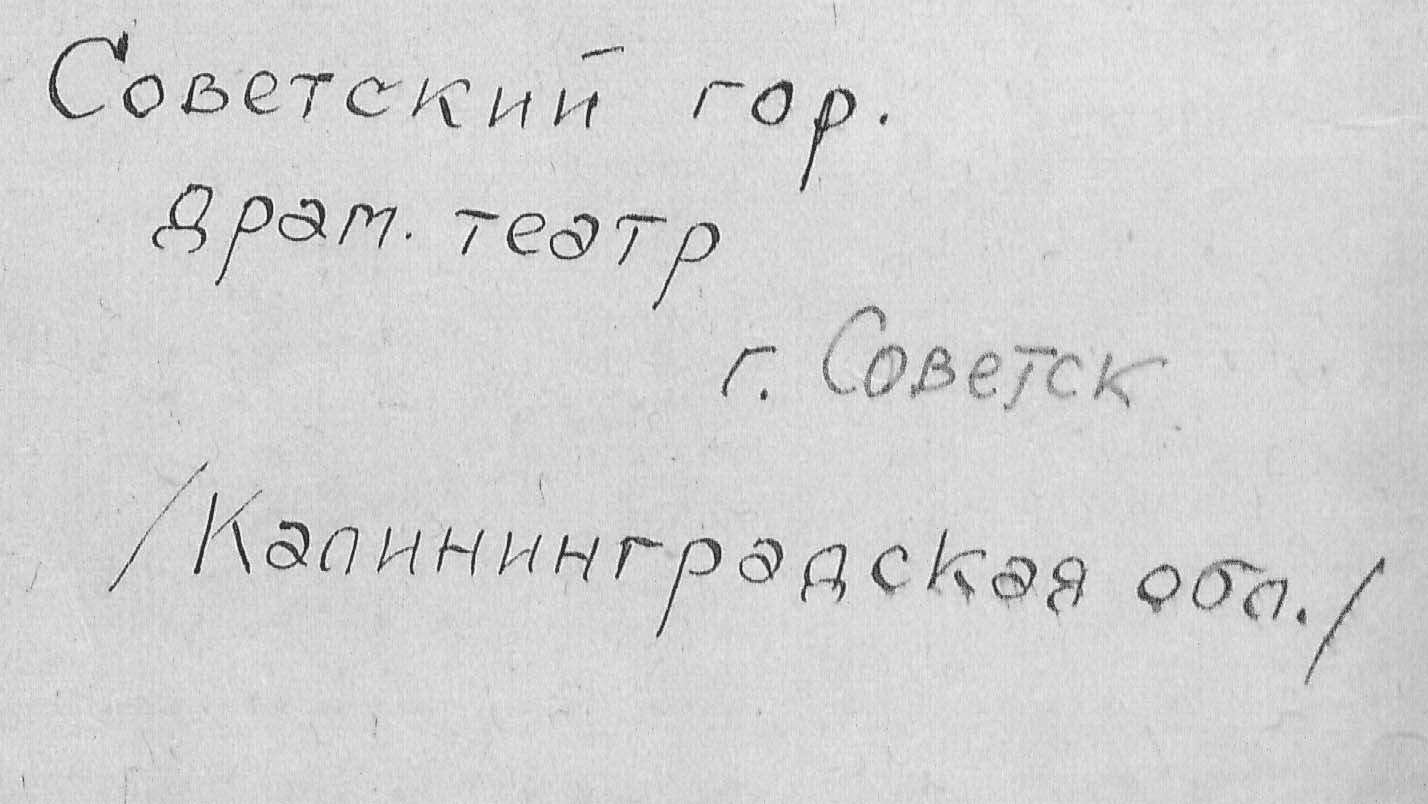 Советский гор.
драм. театр
г. Советск
/Калининградская обл./